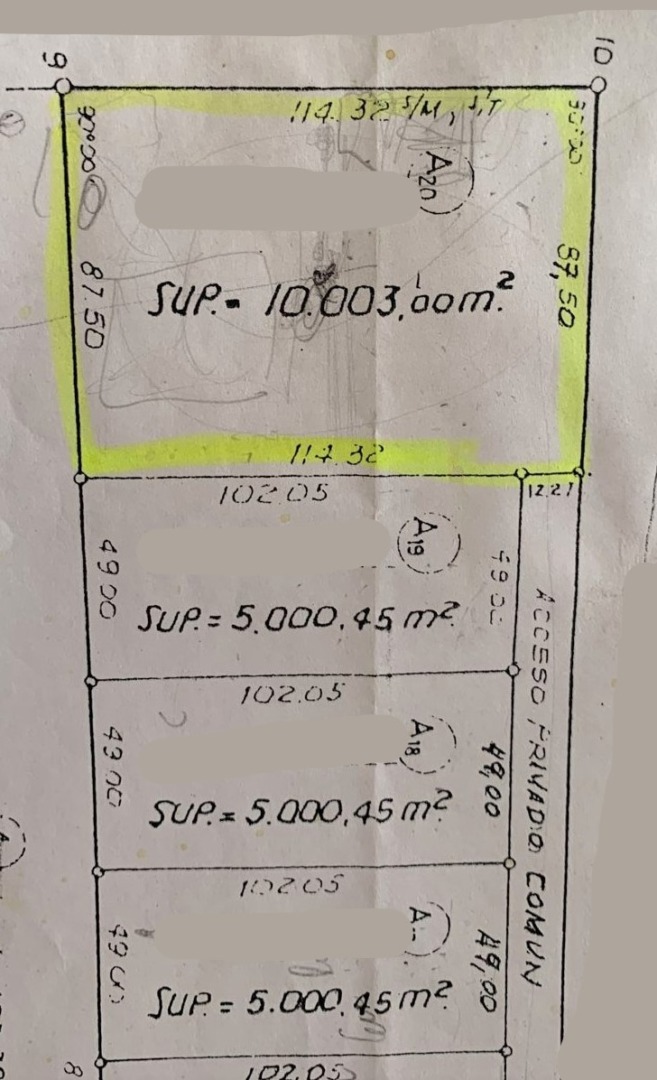 9
10
114.32 S/M, S/T
90°00
A20
87.50
87,50
SUP.= 10.003,00m.²
114.32
102.05
12.27
A19
49.00
SUP.= 5.000,45 m².
ACCESO PRIVADO COMUN
102.05
A18
49.00
49,00
SUP.= 5.000,45 m².
102.05
49,00
SUP.= 5.000,45 m².
8
102.05